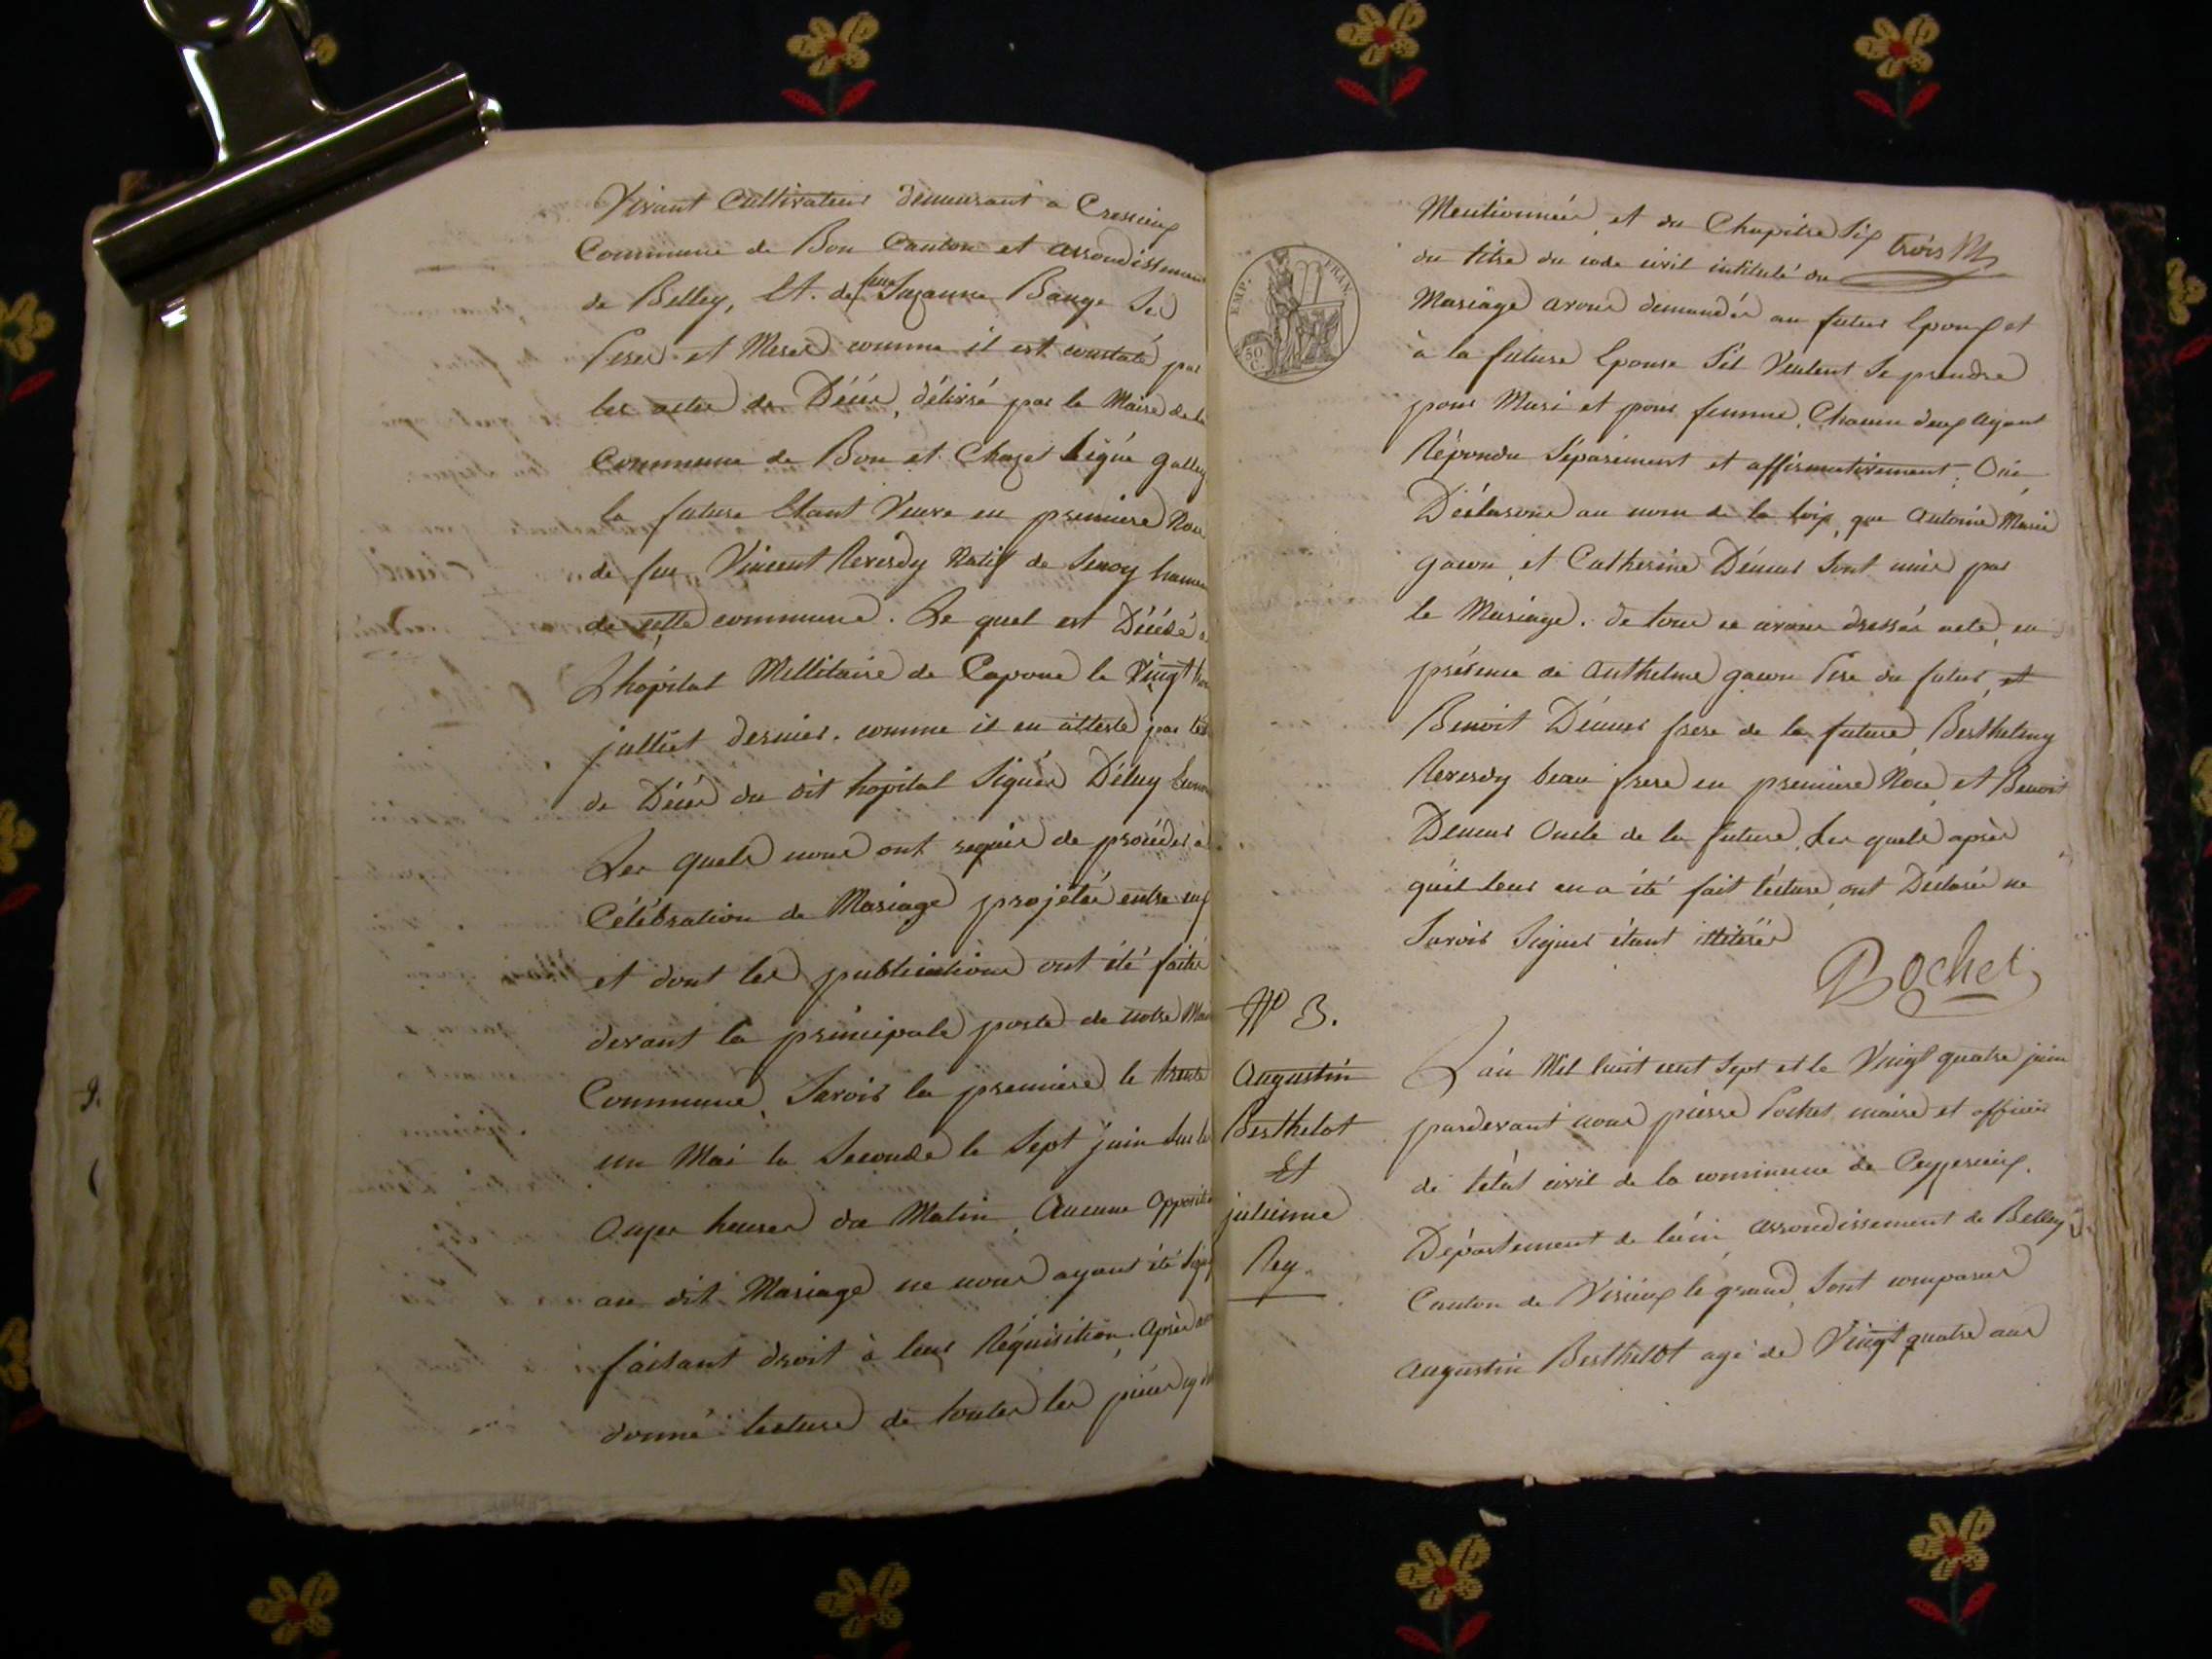 Vivant Cultivateur demeurant a Cressieux
Commune de Bon Canton et arrondissement
de Belley, Et. de feue Suzanne Bauge Ses
Peres et Meres comme il est constaté par
les actes de Décés, délivré par le Maire de la
Commune de Bon et Chazet Signé
la future Etant Veuve en premiere Noce
de feu Vincent Reverdy Natif de
de cette commune. Le quel est Décédé a
L'hopital Millitaire de Capoue le Vingt
julliet dernier. comme il en atteste par
de Décés du dit hopital Signés
Les quels nous ont requis de procéder a
Célébration de Mariage projetée entre eux
et dont les publications ont été faite
devant la principale porte de notre
Commune, Savoir la premiere le trente
un Mai la Seconde le Sept juin Sur les
Onze heures du Matin, Aucune Opposition
au dit Mariage ne nous ayant été
faisant droit à leur Réquisition. Après
donné lecture de toutes les pièces
Mentionnées, et du Chapitre Six
trois
du titre du code civil intitulé du
EMP. FRAN.
50 C.
Mariage avons demandés au futur Epoux et
à la future Epouse S'il Veulent Se prendre
pour Mari et pour femme, Chacun deux Ayant
Répondu Séparément et affirmativement. Oui
Déclarons au nom de la loix, que Antoine Marie
gacon, et Catherine Démeur Sont unis par
le Mariage. de tous ce avons dressés acte, en
présence de Anthelme gacon Pere du futur, et
Benoit Démeur frere de la future, Berthelmy
Reverdy beau frere en premiere Noce, et Benoit
Demeur Oncle de la future, Les quels après
qu'il leur en a été fait lecture, ont Déclaré ne
Savoir Signer étant illitérés
Bochet
N° 3.
Augustin
Berthelot
Et
julienne
Rey.
L'an Mil huit cent Sept et le Vingt quatre juin
pardevant nous pierre Pochet, maire et officier
de l'état civil de la commune de Ceyzerieux,
Département de l'ain arrondissement de Belley
Canton de Virieux le grand, Sont comparus
Augustin Berthelot agé de Vingt quatre ans